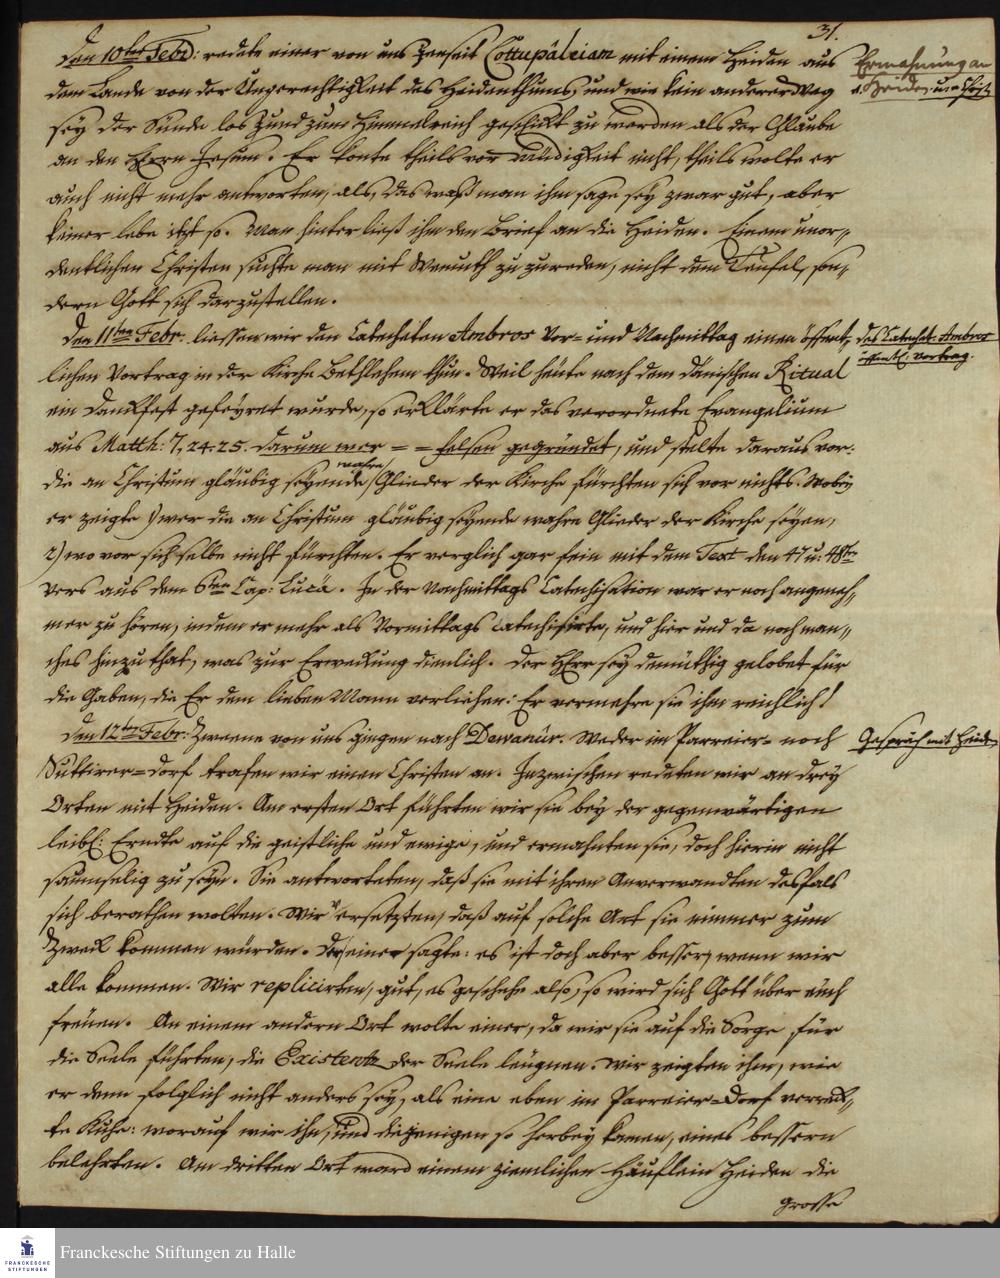 31.
Den 10ten Febr: redete einer von uns jenseit Cottupáleiam mit einem Heiden aus
Ermahnung an
dem Lande von der Ungerechtigkeit des Heidenthums, und wie kein anderer Weg
Heiden u.
sey der Sünde los und zum Himmelreich geschikt zu werden als der Glaube
an den HErrn Jesum. Er konte theils vor Müdigkeit nicht, theils wolte er
auch nicht mehr antworten, als, das waß man ihm sage sey zwar gut, aber
keiner lebe itzt so. Man hinterließ ihm den Brief an die Heiden. Einem unor-
dentlichen Christen suchte man mit Wemuth zuzureden, nicht dem Teufel, son-
dern Gott sich darzustellen.
Den 11ten Febr: liessen wir den Catecheten Ambros Vor- und Nachmittag einen öffent-
des Catechet. Ambros
öffentl. Vortrag.
lichen Vortrag in der Kirche Bethlehem thun. Weil heute nach dem dänischen Ritual
ein Dankfest gefeyret wurde, so erklärte er das verordnete Evangelium
aus Matth: 7, 24-25. Darum wer = = felsen gegründet, und stelte daraus vor:
die an Christum gläubig seyende wahre Glieder der Kirche fürchten sich vor nichts. Wobey
er zeigte 1) wer die an Christum gläubig seyende wahre Glieder der Kirche seyen,
2) wo vor sich selbe nicht fürchten. Er verglich gar fein mit dem Text den 47 u: 48ten
Vers aus dem 6ten Cap: Lucä. In der Nachmittags Catechisation war er noch angeneh-
mer zu hören, indem er mehr als Vormittags catechisirte, und hier und da noch man-
ches hinzu that, was zur Erweckung dienlich. Der HErr sey demüthig gelobet für
die Gaben, die Er dem lieben Mann verliehen: Er vermehre sie ihm reichlich!
Den 12ten Febr: Zweene von uns gingen nach Dewanúr. Weder im Parreier- noch
Gespräch mit Heiden
Suttirer-dorf trafen wir einen Christen an. Inzwischen redeten wir an drey
Orten mit Heiden. Am ersten Ort führten wir sie bey der gegenwärtigen
leibl: Erndte auf die geistliche und ewige, und ermahnten sie, doch hierin nicht
saumselig zu seyn. Sie antworteten, daß sie mit ihren Anverwandten desfals
sich berathen wolten. Wir versetzten, daß auf solche Art sie nimmer zum
Zweck kommen würden. Der eine sagte: es ist doch aber besser, wenn wir
alle kommen. Wir replicirten, gut, es geschehe also, so wird sich Gott über euch
freuen. An einem andern Ort wolte einer, da wir sie auf die Sorge für
die Seele führten, die Existentz der Seele leugnen. Wir zeigten ihm, wie
er denn folglich nicht anders sey, als eine eben im Parreier-Dorf verreck-
te Kuhe: worauf wir ihn, und diejenigen so herbey kamen, eines bessern
belehrten. Am dritten Ort ward einem ziemlichen Häuflein Heiden die
grosse
FRANCKESCHE
STIFTUNGEN
Franckesche Stiftungen zu Halle